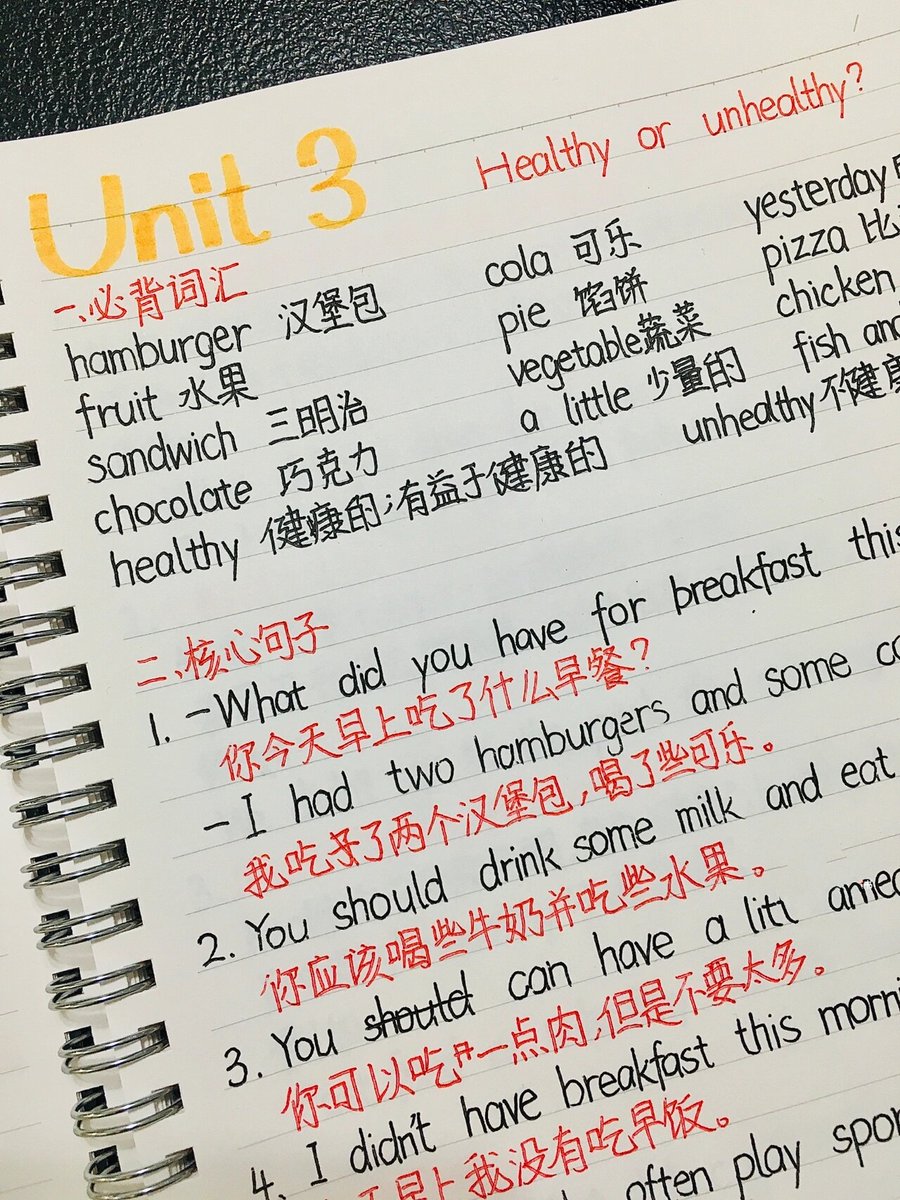 Unit 3 Healthy or unhealthy?
一、必背词汇
hamburger 汉堡包 cola 可乐 yesterday
fruit 水果 pie 馅饼 pizza 比
sandwich 三明治 vegetable蔬菜 chicken
chocolate 巧克力 a little 少量的 fish and
healthy 健康的;有益于健康的 unhealthy不健康
二、核心句子
1. -What did you have for breakfast this
你今天早上吃了什么早餐?
-I had two hamburgers and some co
我吃了两个汉堡包,喝了些可乐。
2. You should drink some milk and eat
你应该喝些牛奶并吃些水果。
3. You should can have a litl amea
你可以吃一点肉,但是不要太多。
4. I didn't have breakfast this morni
天早上我没有吃早饭。
often play spor